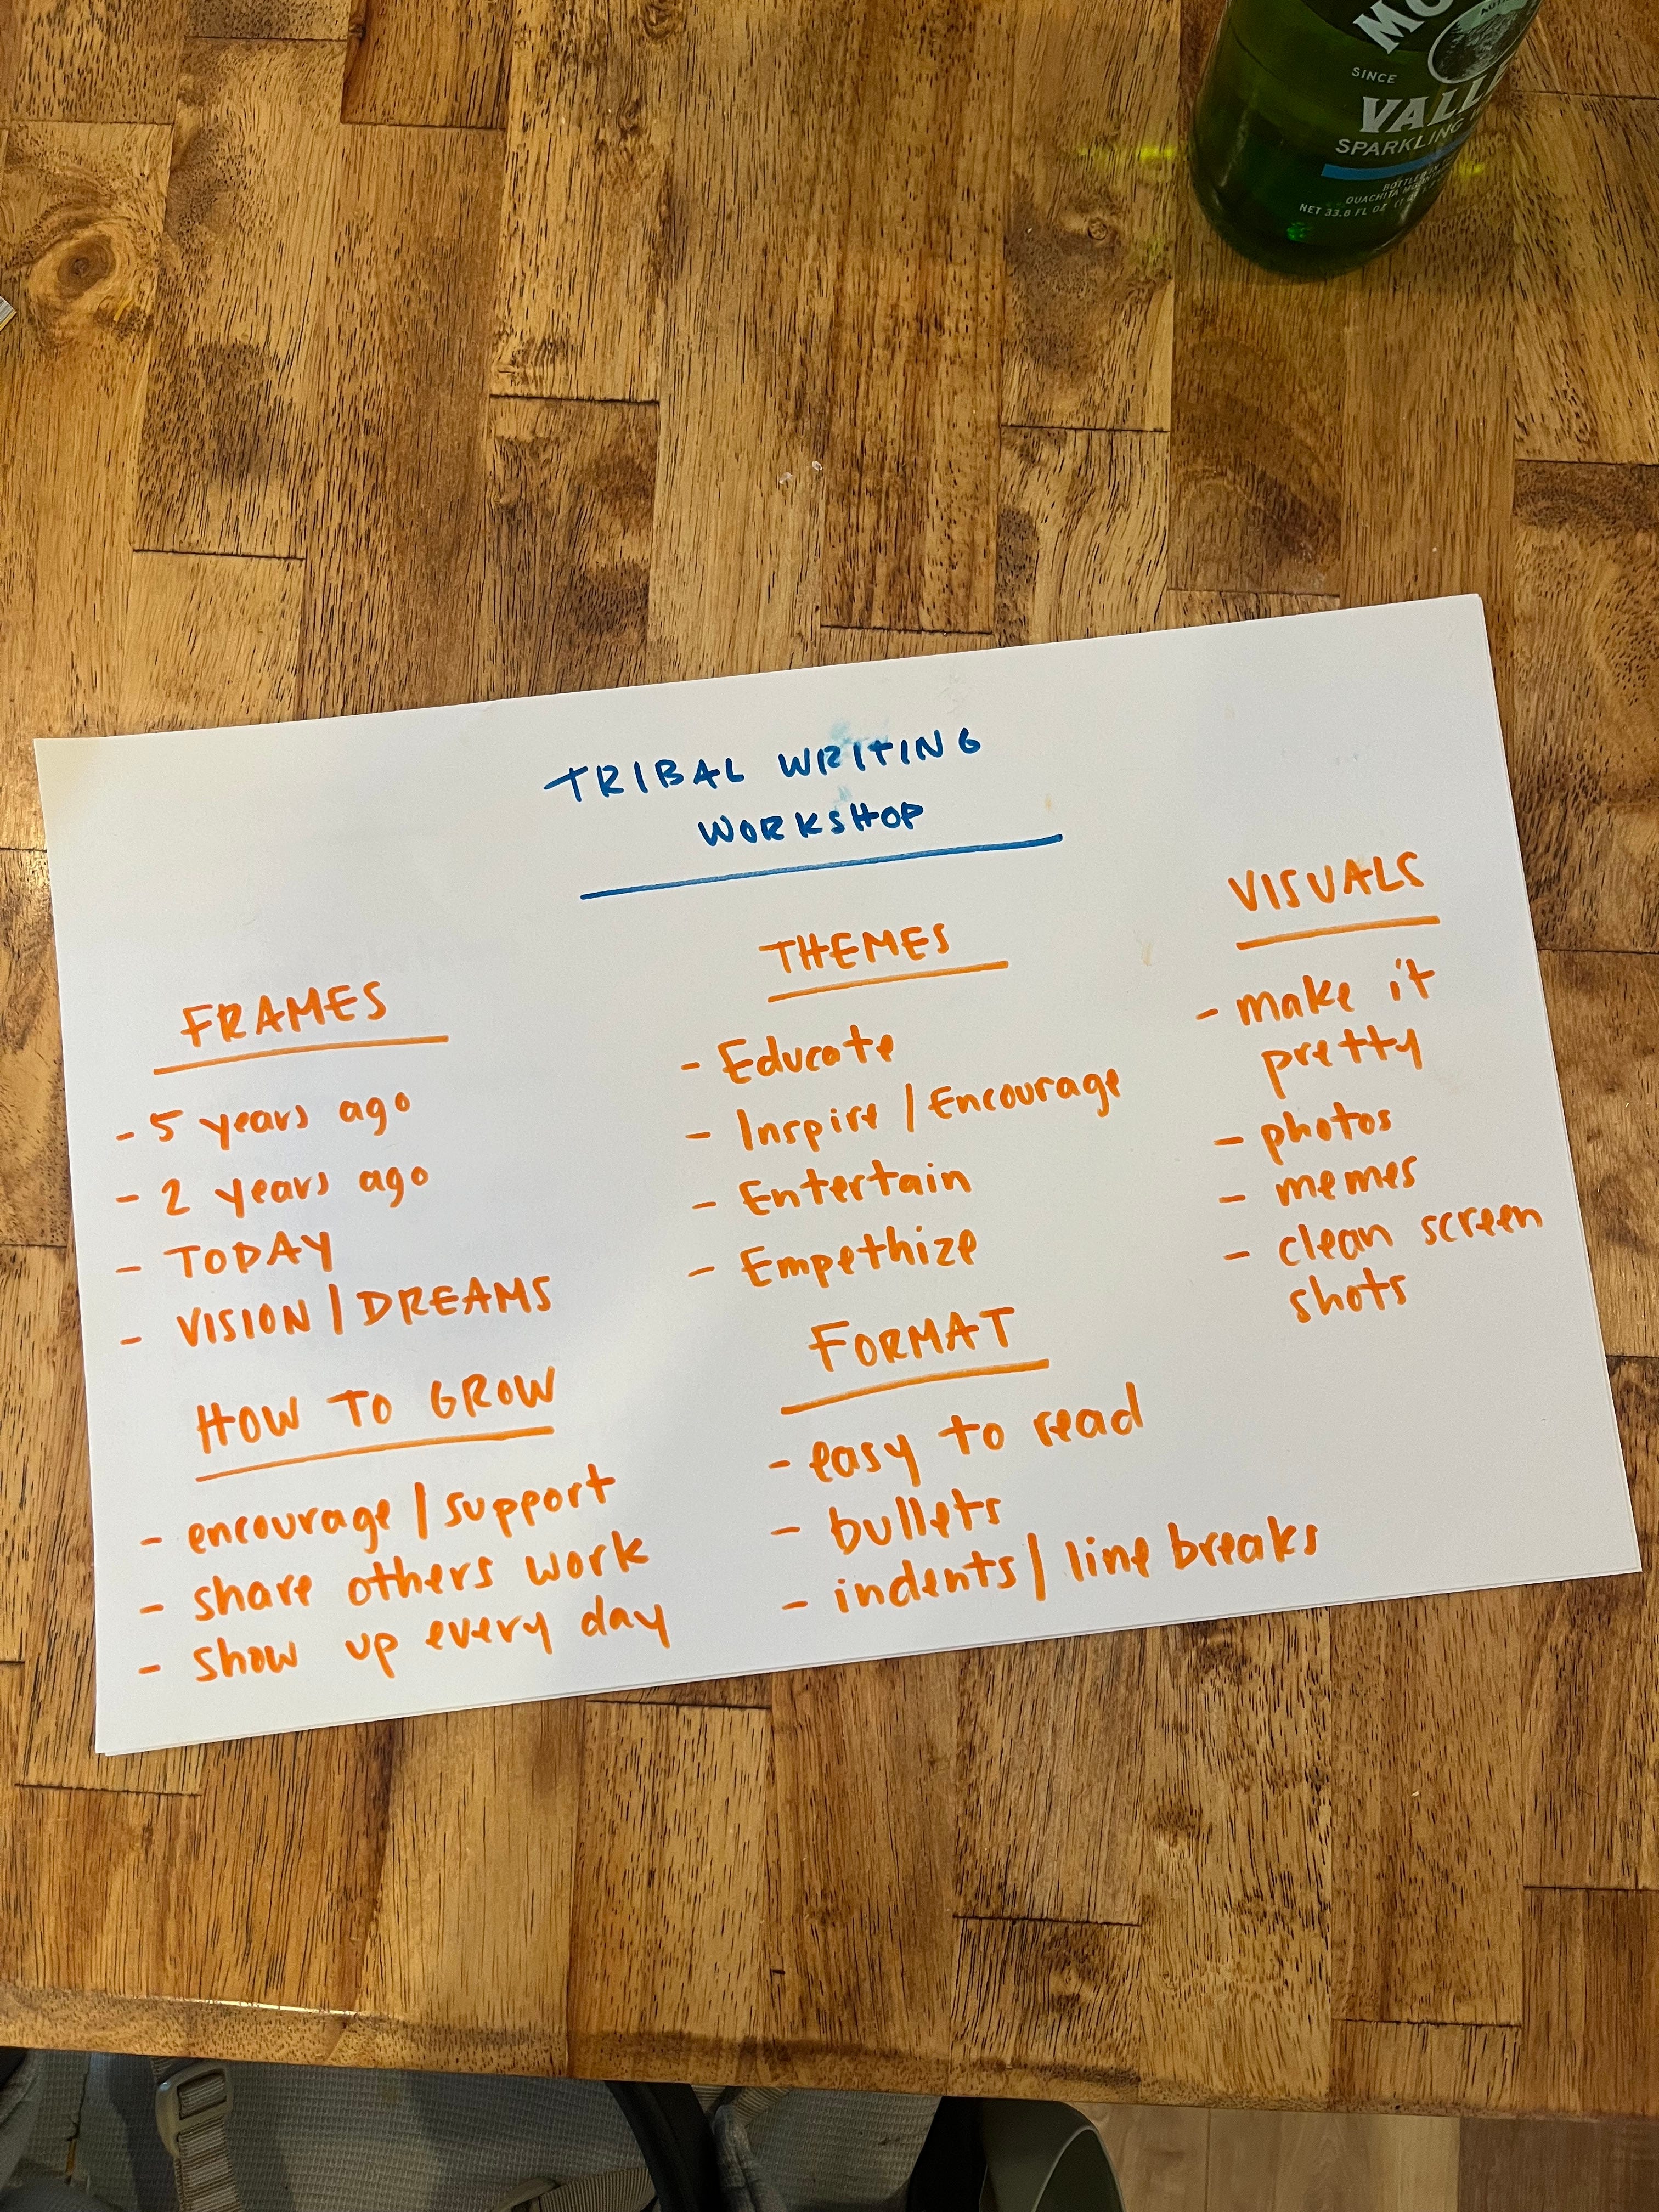 SINCE
SPARKLING
NET 33.8 FL OZ
TRIBAL WRITING
WORKSHOP
FRAMES
- 5 years ago
- 2 years ago
- TODAY
- VISION/DREAMS
HOW TO GROW
- encourage/support
- share others work
- show up every day
THEMES
- Educate
- Inspire/Encourage
- Entertain
- Empethize
FORMAT
- easy to read
- bullets
- indents/line breaks
VISUALS
- make it
pretty
- photos
- memes
- clean screen
shots